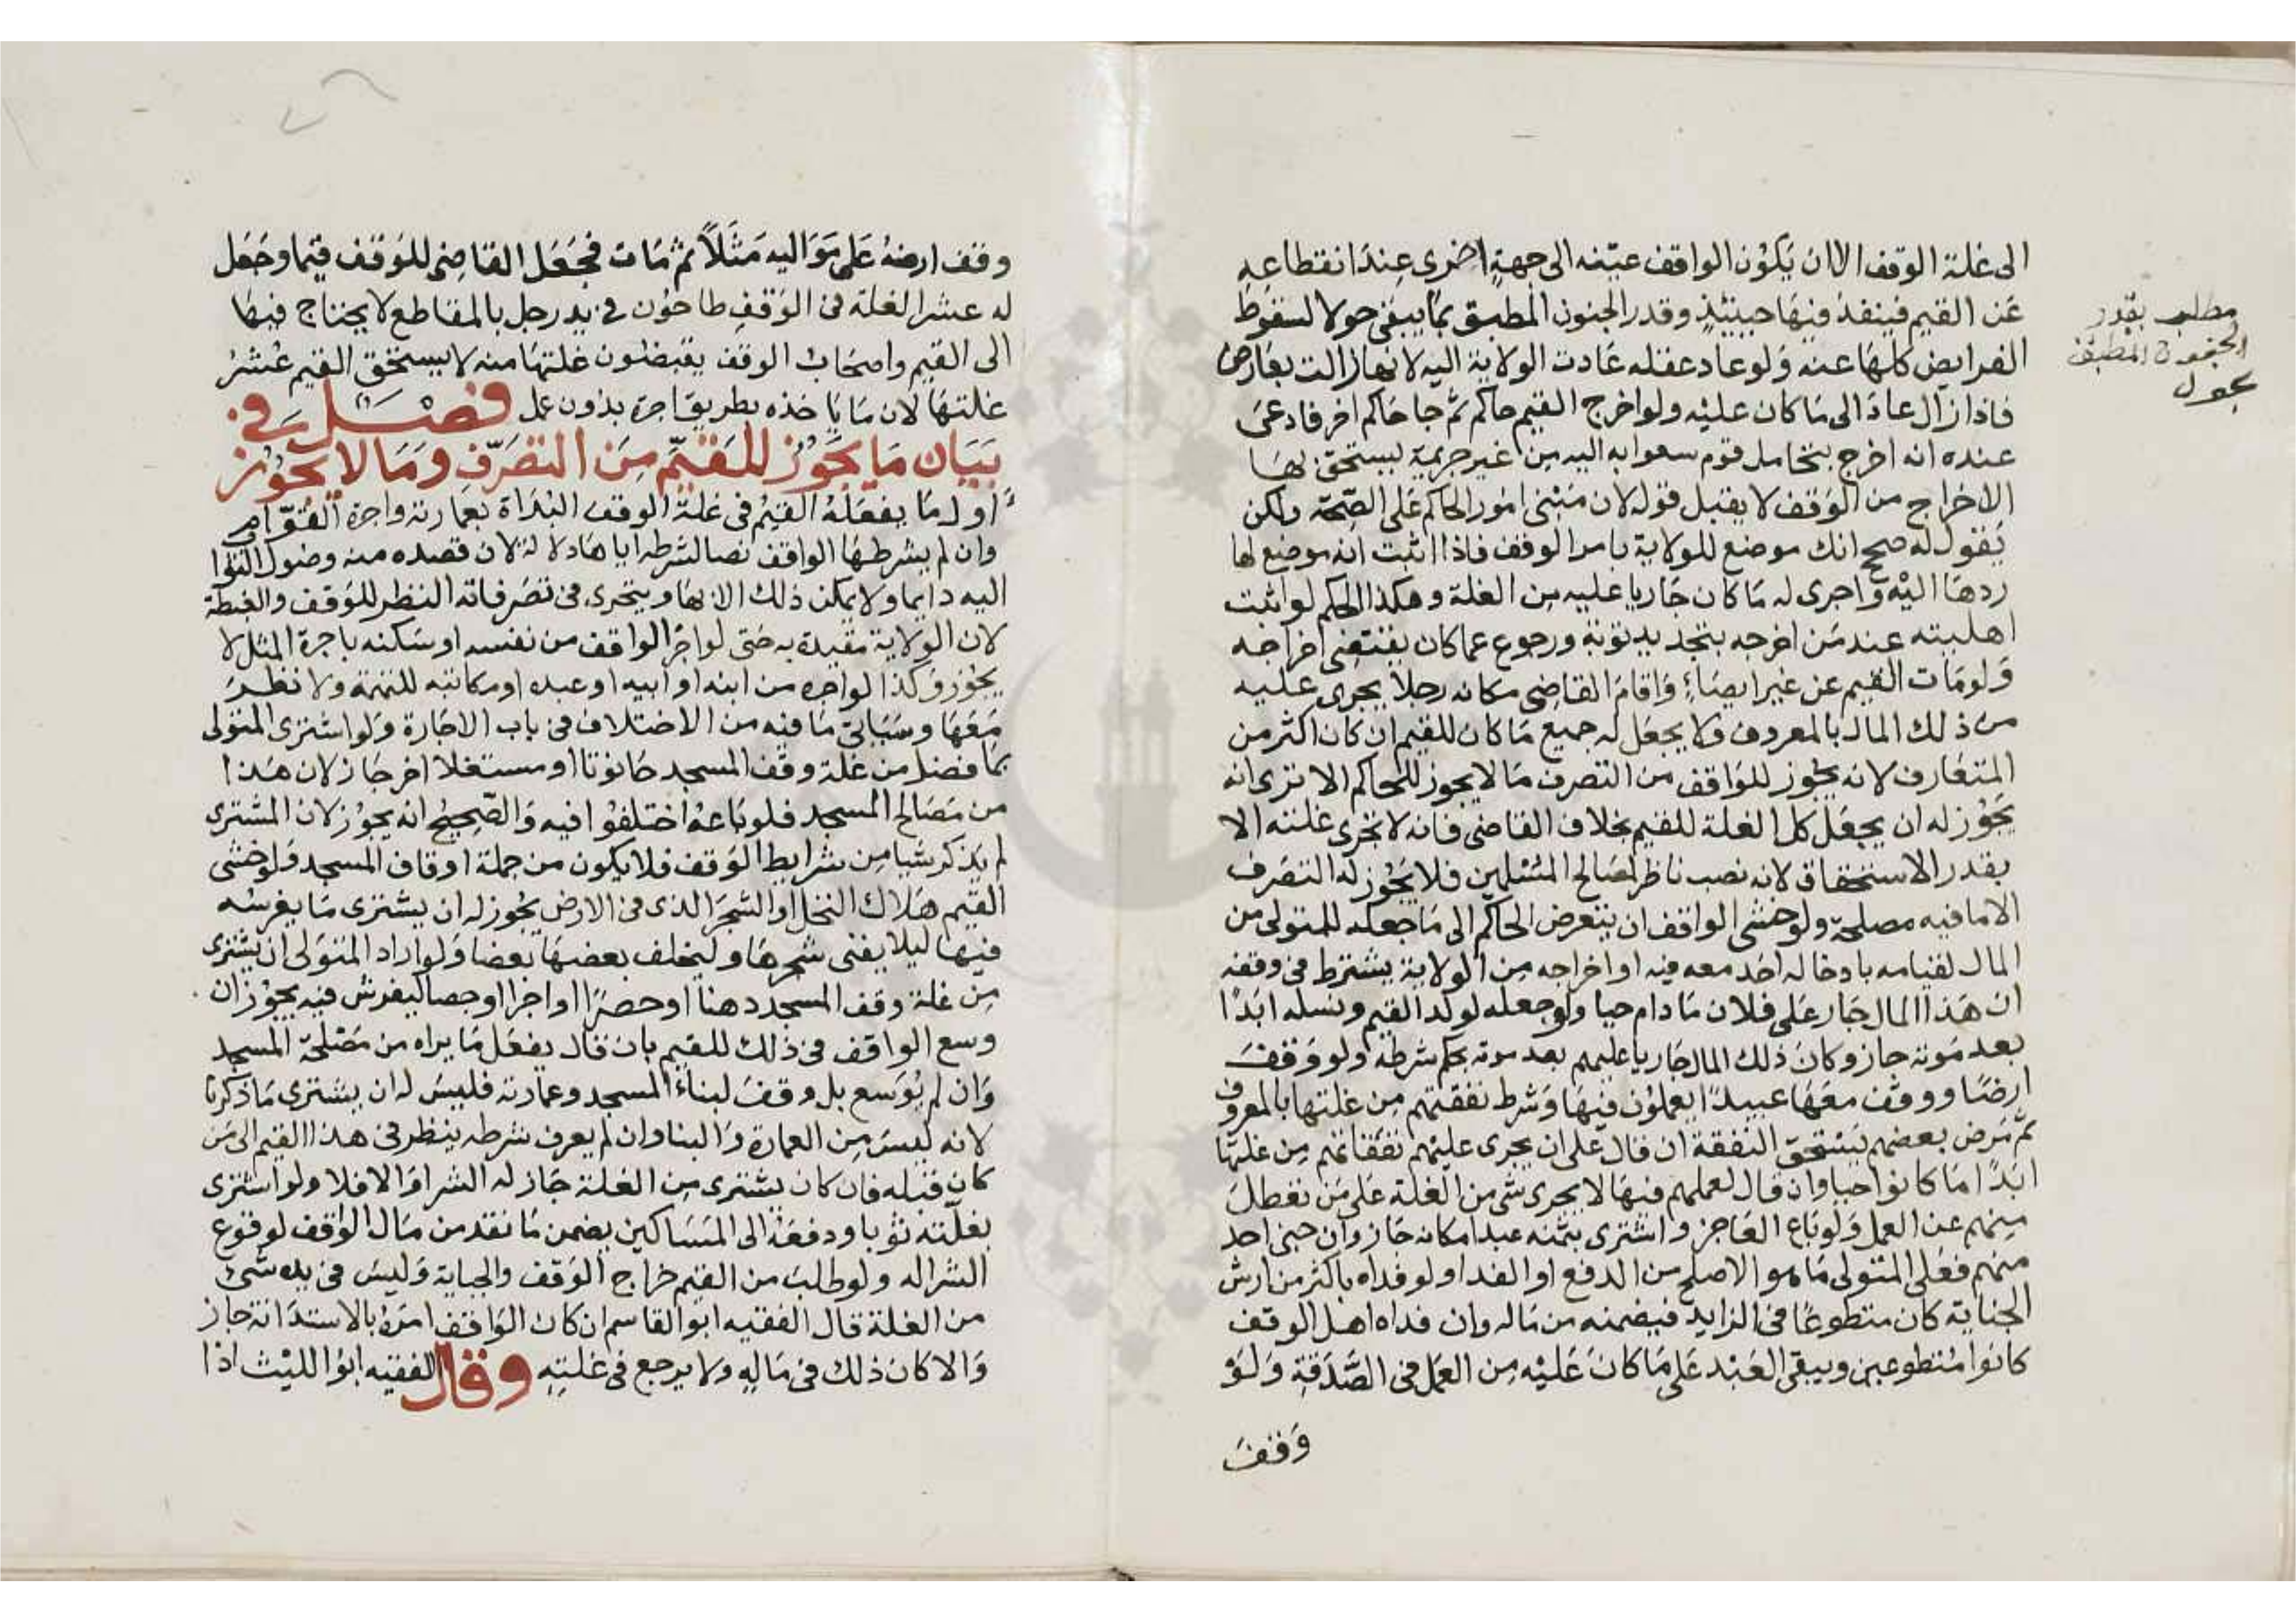 الى غلة الوقف الا ان يكون الواقف عينه الى جهة اخرى عند انقطاعه
عن القيم فينفذ فيها حينئذ وقدر الجنون المطبق بما يبقى حولا لسقوط
الفرايض كلها عنه ولو عاد عقله عادت الولاية اليه لانها زالت بعارض
فاذا زال عاد الى ما كان عليه ولو اخرج القيم حاكم ثم جا حاكم اخر فادعى
عنده انه اخرج بتحامل قوم سعوا به اليه من غير جريمة يستحق بها
الاخراج من الوقف لا يقبل قوله لان مبنى امور الحاكم على الصحة ولكن
يقول له صحح انك موضع للولاية بامر الوقف فاذا اثبت انه موضع لها
ردها اليه واجرى له ما كان جاريا عليه من الغلة وهكذا الحكم لو اثبت
اهليته عند من اخرجه بتجديد توبة ورجوع عما كان يقتضي اخراجه
ولو مات القيم عن غير ايصاء واقام القاضي مكانه رجلا يجرى عليه
من ذلك المال بالمعروف ولا يجعل له جميع ما كان للقيم ان كان اكثر من
المتعارف لانه يجوز للواقف من التصرف ما لا يجوز للحاكم الا ترى انه
يجوز له ان يجعل كل الغلة للقيم بخلاف القاضي فانه لا تجرى غلته الا
بقدر الاستحقاق لانه نصب ناظرا لمصالح المسلمين فلا يجوز له التصرف
الا ما فيه مصلحة ولو خشى الواقف ان يتعرض الحاكم الى ما جعله للمتولى من
المال لقيامه بادخاله احد معه فيه او اخراجه من الولاية يشترط فى وقفه
ان هذا المال جار على فلان ما دام حيا ولو جعله لولد القيم ونسله ابدا
بعد موته جاز وكان ذلك المال جاريا عليهم بعد موته بحكم شرطه ولو وقف
ارضا ووقف معها عبيدا يعملون فيها وشرط نفقتهم من غلتها بالمعروف
ثم مرض بعضهم يستحق النفقة ان قال على ان يجرى عليهم نفقاتهم من غلتها
ابدا ما كانوا احيا وان قال لعملهم فيها لا يجرى شى من الغلة على من تعطل
منهم عن العمل ولو باع العاجز واشترى بثمنه عبدا مكانه جاز وان جنى احد
منهم فعلى المتولى ما هو الاصلح من الدفع او الفدا ولو فداه باكثر من ارش
الجناية كان متطوعا فى الزايد فيضمنه من ماله وان فداه اهل الوقف
كانوا متطوعين ويبقى العبد على ما كان عليه من العمل فى الصدقة ولو
وقف
مطلب بقدر
الجنون المطبق
بحول
وقف ارضه على مواليه مثلا ثم مات فجعل القاضى للوقف قيما وجعل
له عشر الغلة فى الوقف طاحون فى يد رجل بالمقاطع لا يحتاج فيها
الى القيم واصحاب الوقف يقبضون غلتها منه لا يستحق القيم عشر
غلتها لان ما ياخذه بطريق اجرة بدون عمل فصل في
بيان ما يجوز للقيم من التصرف وما لا يجوز
اول ما يفعله القيم فى غلة الوقف البداة بعمارته واجرة القوام
وان لم يشرطها الواقف نصا لشرطه اياها دلالة لان قصده منه وصول الثوا
اليه دايما ولا يمكن ذلك الا بها ويتحرى فى تصرفاته النظر للوقف والغبطة
لان الولاية مقيدة به حتى لو اجر الواقف من نفسه او سكنه باجرة المثل لا
يجوز وكذا لو اجره من ابنه او ابيه او عبده او مكاتبه للتهمة ولا نظر
معها وسياتى ما فيه من الاختلاف فى باب الاجارة ولو اشترى المتولى
بما فضل من غلة وقف المسجد حانوتا او مستغلا اخر جاز لان هذا
من مصالح المسجد فلو باعه اختلفوا فيه والصحيح انه يجوز لان المشترى
لم يذكر شيا من شرايط الوقف فلا يكون من جملة اوقاف المسجد ولو خشى
القيم هلاك النخل او الشجر الذى فى الارض يجوز له ان يشترى ما يغرسه
فيها ليلا يفنى شجرها وليخلف بعضها بعضا ولو اراد المتولى ان يشترى
من غلة وقف المسجد دهنا او حصرا او اجرا او جصا ليفرش فيه يجوز ان
وسع الواقف فى ذلك للقيم بان قال يفعل ما يراه من مصلحة المسجد
وان لم يوسع بل وقف لبناء المسجد وعمارته فليس له ان يشترى ما ذكرنا
لانه ليس من العمارة والبنا وان لم يعرف شرطه ينظر فى هذا القيم الى من
كان قبله فان كان يشترى من الغلة جاز له الشرا والا فلا ولو اشترى
بغلته ثوبا ودفعه الى المساكين يضمن ما نقد من مال الوقف لوقوع
الشرا له ولو طلب من القيم خراج الوقف والجباية وليس فى يده شئ
من الغلة قال الفقيه ابو القاسم ان كان الواقف امره بالاستدانة جاز
والا كان ذلك فى ماله ولا يرجع فى غلته وقال الفقيه ابو الليث اذا